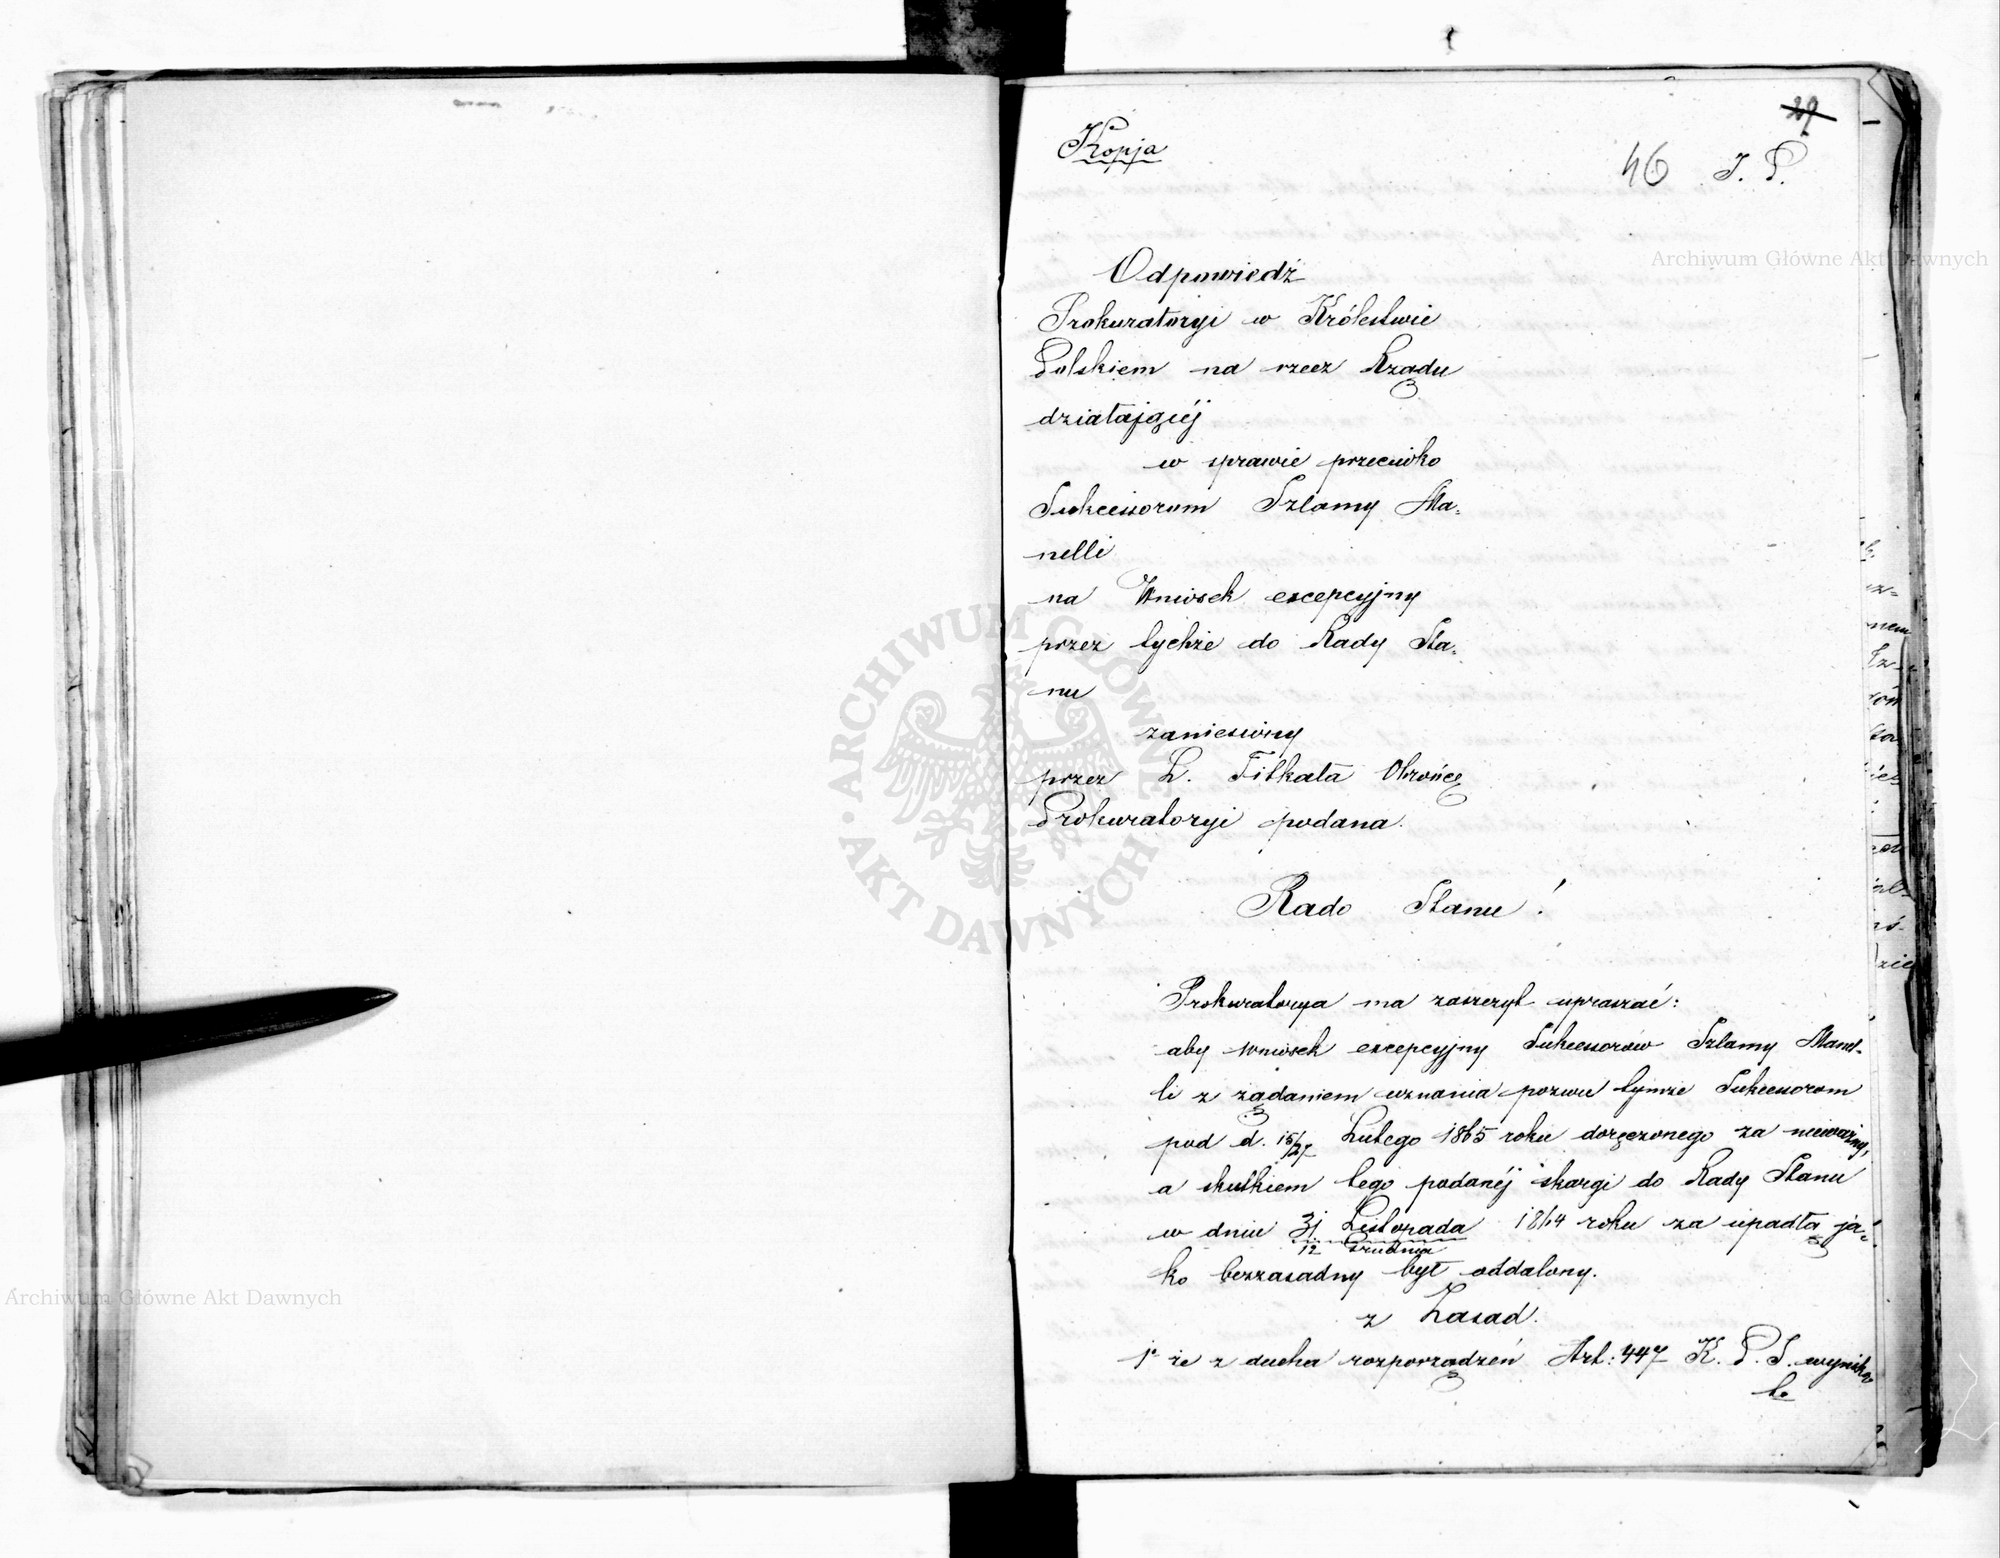 29
Kopja
46 J. P.
Odpowiedź
Prokuratoryi w Królestwie
Polskiem na rzecz Rządu
działającéj
w sprawie przeciwko
Sukcessorom Szlamy Ma-
nelli
na Wniosek excepcyjny
przez tychże do Rady Sta-
nu
zaniesiony
przez L. Fitkała Obrońcę
Prokuratoryi podana.
Rado Stanu!
Prokuratorya ma zaszczyt upraszać:
aby wniosek excepcyjny Sukcessorów Szlamy Manel-
li z żądaniem uznania pozwu tymże Sukcessorom
pod d. 15/27 Lutego 1865 roku doręczonego za nieważny,
a skutkiem tego podanéj skargi do Rady Stanu
w dniu Listopada 1864 roku za upadłą ja-
12 Grudnia
ko bezzasadny był oddalony.
z Zasad.
1º że z ducha rozporządzeń Art: 447 K. P. S. wynika
Archiwum Główne Akt Dawnych
ARCHIWUM GŁÓWNE AKT DAWNYCH
Archiwum Główne Akt Dawnych